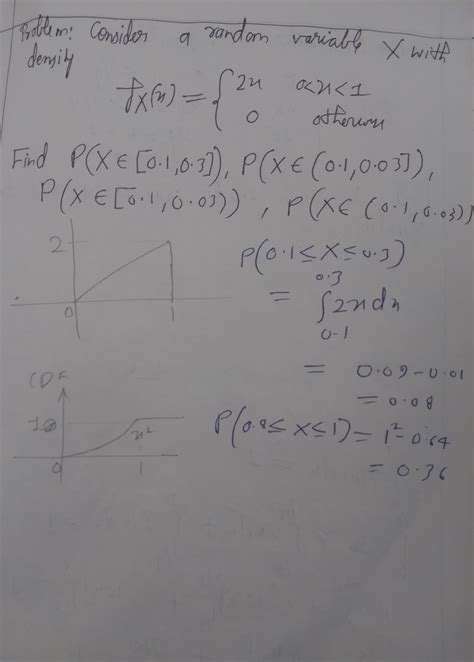 Problem: Consider a random variable X with
density
f_X(x) = { 2x 0<x<1
0 otherwise
Find P(X ∈ [0.1,0.3]), P(X ∈ (0.1,0.03]),
P(X ∈ [0.1,0.03)), P(X ∈ (0.1,0.03))
2
0 1
P(0.1 ≤ X ≤ 0.3)
= ∫_{0.1}^{0.3} 2x dx
= 0.09 - 0.01
= 0.08
CDF
1
x²
0 1
P(0.8 ≤ X ≤ 1) = 1² - 0.64
= 0.36